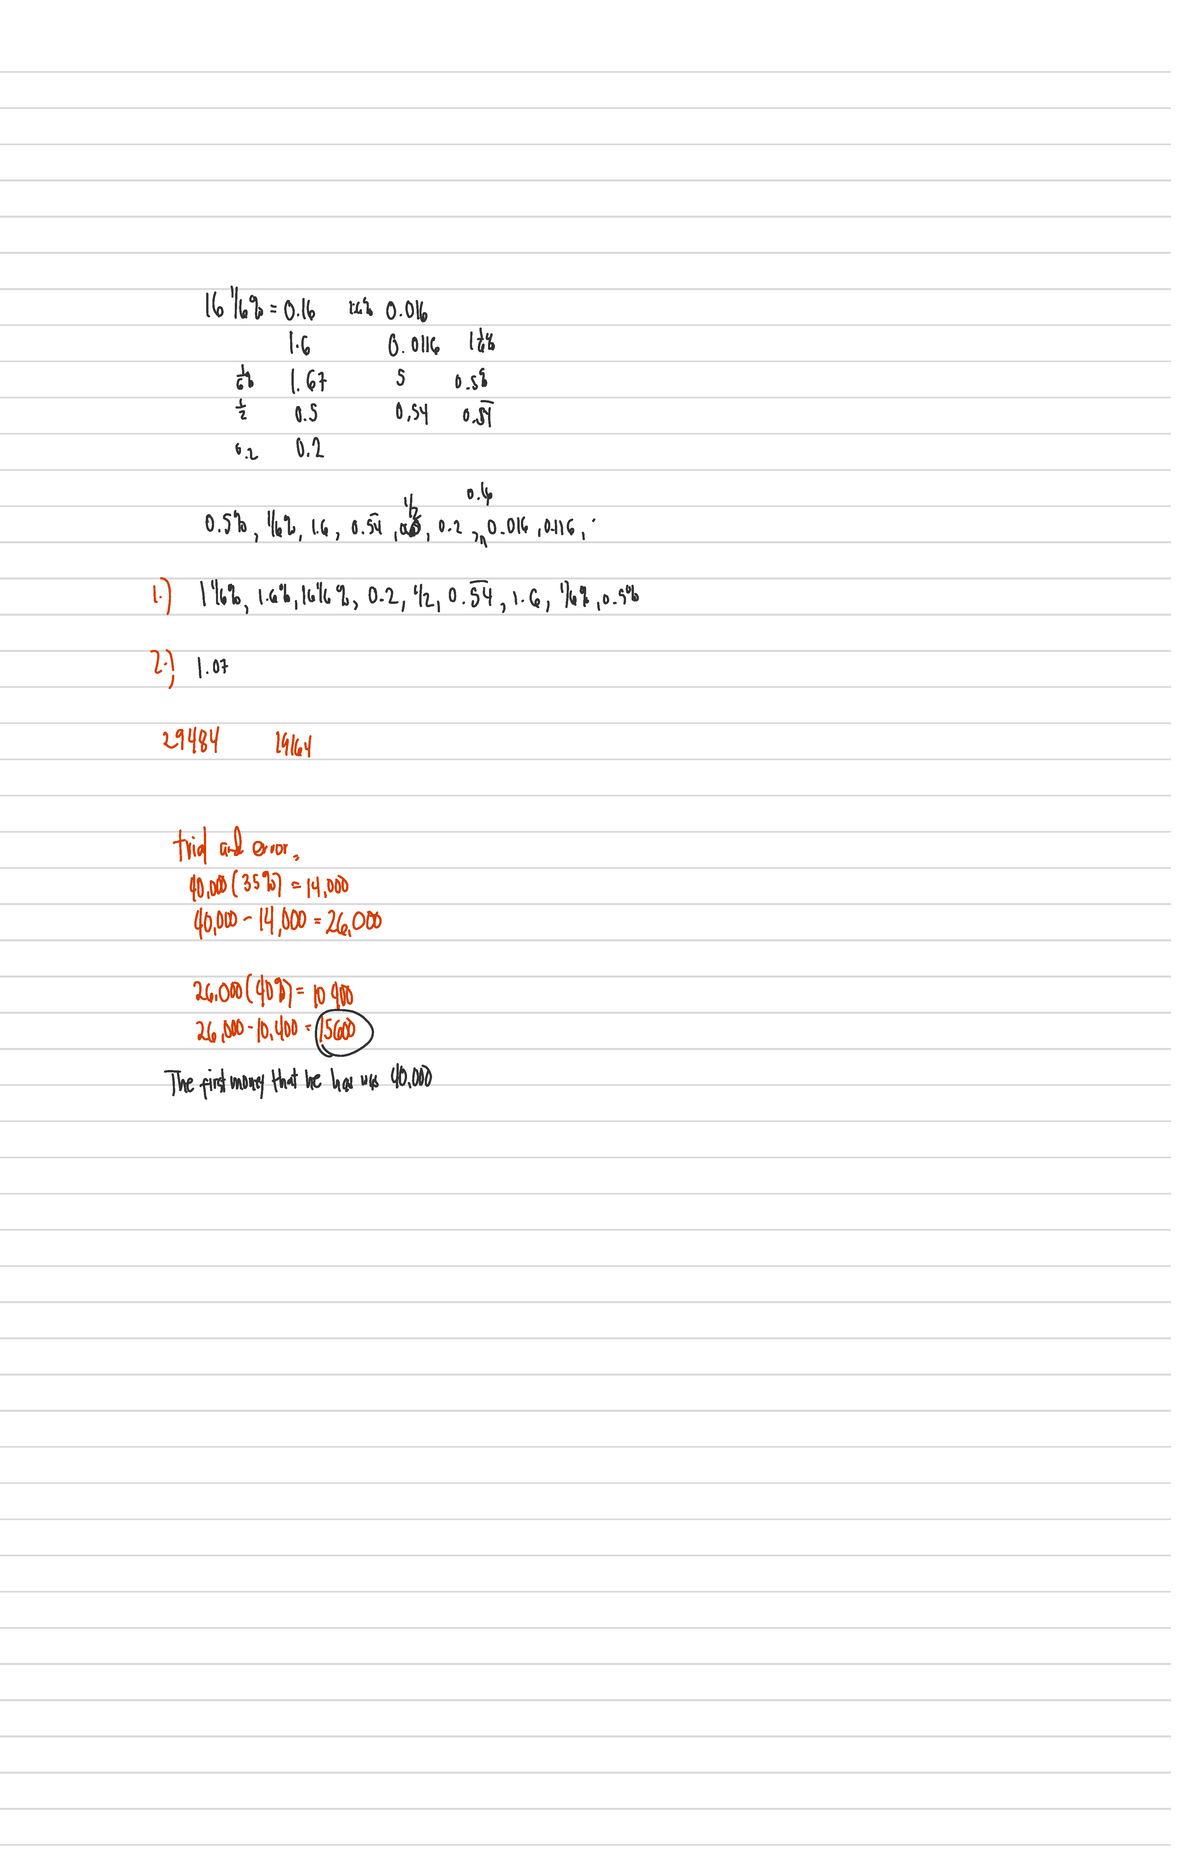 16 1/6% = 0.16 1.6% 0.016
1.6 0.0116 1 1/6%
1/6% 1.67 5 0.5%
1/2 0.5 0.54 0.5̅4̅
0.2 0.2
1/2 0.16
0.5%, 1/6%, 1.6, 0.5̅4̅, 0.2, 0.016, 0.116,
1.) 1 1/6%, 1.6%, 16 1/6%, 0.2, 1/2, 0.5̅4̅, 1.6, 1/6%, 0.5%
2.) 1.07
29484 29164
trial and error.
40,000 (35%) = 14,000
40,000 - 14,000 = 26,000
26,000 (40%) = 10 400
26,000 - 10,400 = 15600
The first money that he has was 40,000